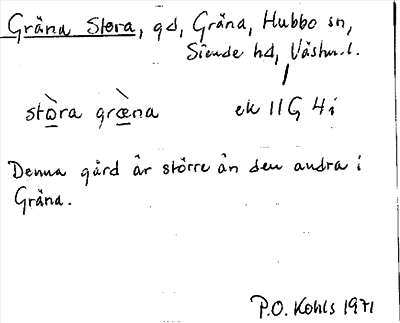 Gräna Stora, gd, Gräna, Hubbo sn,
Siende hd, Västm.l.
stò̱̱ra græ̱̀na ek 11G 4i
Denna gård är större än den andra i
Gräna.
P.O. Kohls 1971